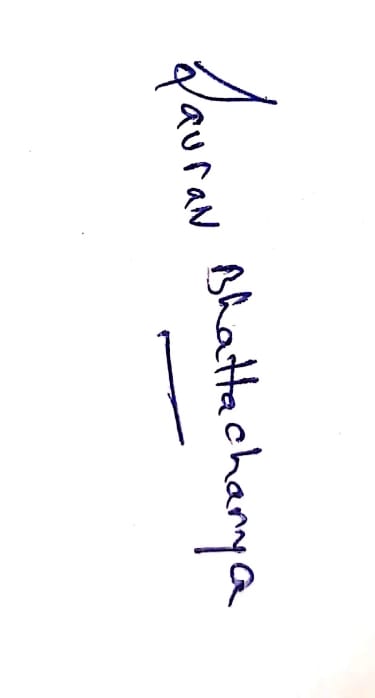 Saurav Bhattacharya